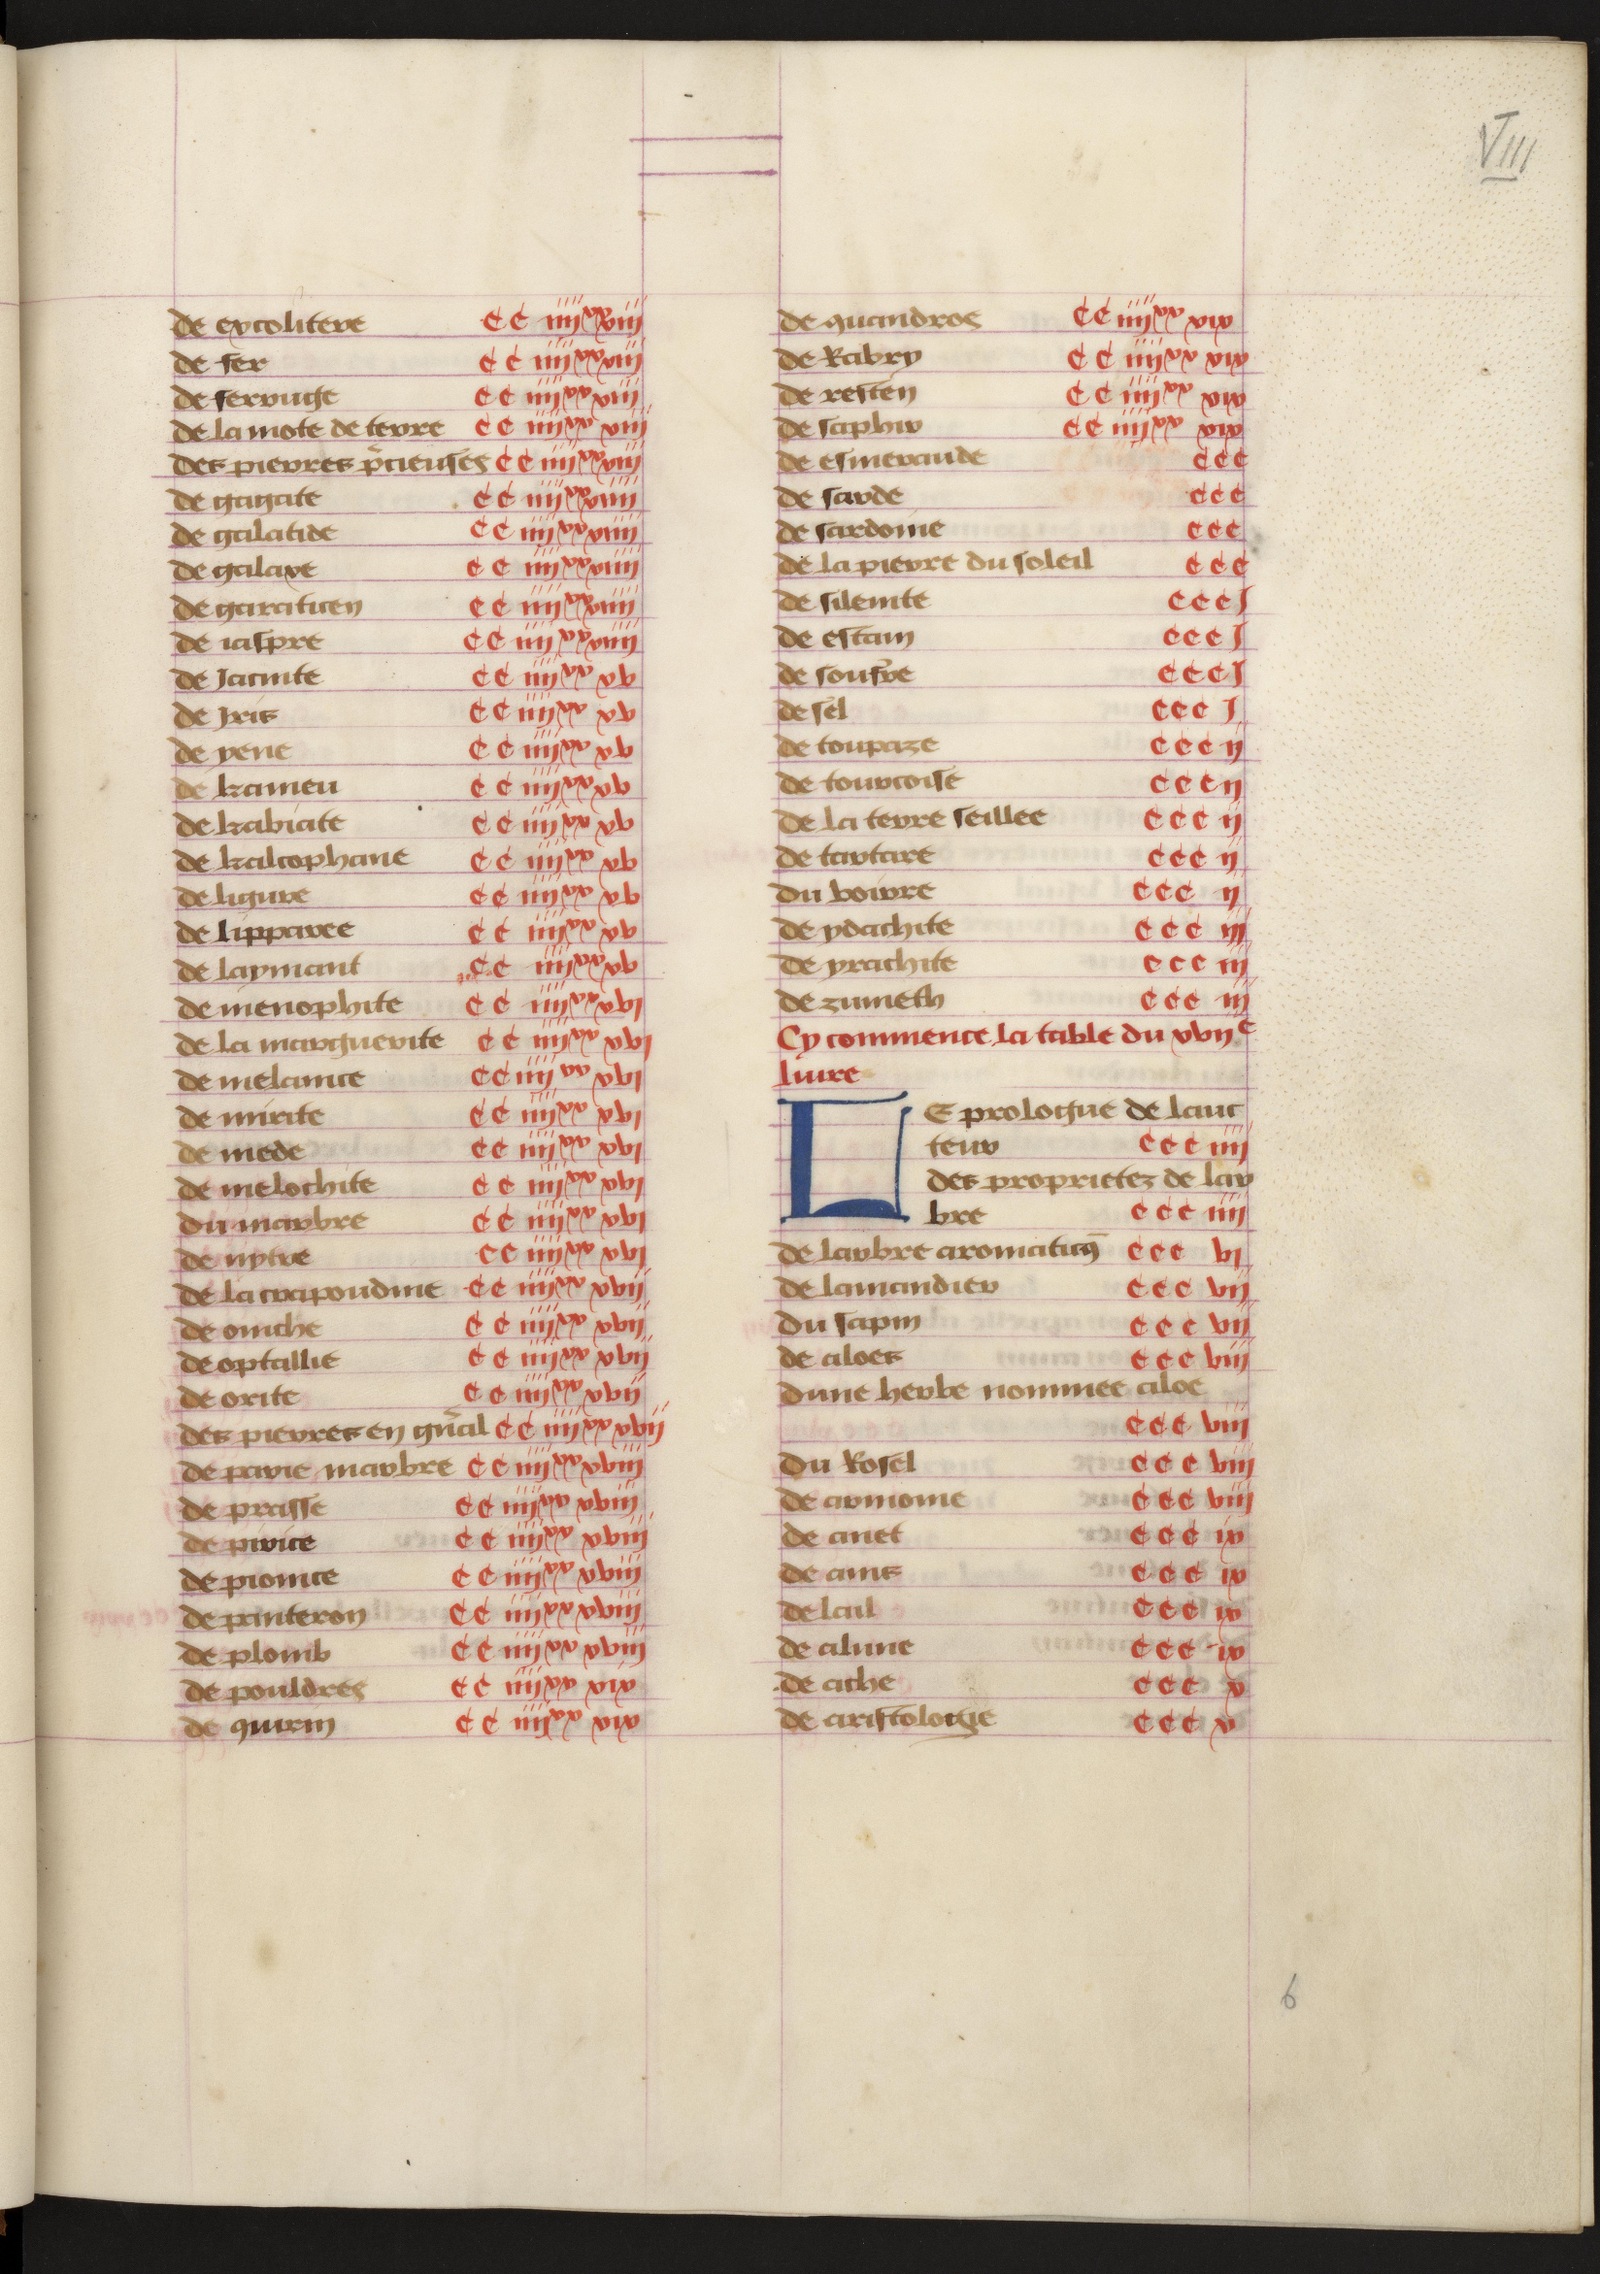 VIII
de excolitere cc iiii xx xiii
de fer cc iiii xx xiii
de feruuge cc iiii xx xiii
de la mote de terre cc iiii xx xiii
des pierres p̄cieuses cc iiii xx xiii
de gagate cc iiii xx xiiii
de galatide cc iiii xx xiiii
de galaxe cc iiii xx xiiii
de garaticen cc iiii xx xiiii
de iaspre cc iiii xx xiiii
de Jacinte cc iiii xx xv
de Jris cc iiii xx xv
de yene cc iiii xx xv
de kameu cc iiii xx xv
de kabiate cc iiii xx xv
de kalcophane cc iiii xx xv
de ligure cc iiii xx xv
de lipparee cc iiii xx xv
de laymant cc iiii xx xv
de menophite cc iiii xx xvi
de la marguerite cc iiii xx xvi
de melanite cc iiii xx xvi
de mirite cc iiii xx xvi
de mede cc iiii xx xvi
de melochite cc iiii xx xvi
du marbre cc iiii xx xvi
de nytre cc iiii xx xvi
de la crapoudine cc iiii xx xvii
de oniche cc iiii xx xvii
de optallie cc iiii xx xvii
de orite cc iiii xx xvii
des pierres en gn̄al cc iiii xx xvii
de parie marbre cc iiii xx xviii
de prasse cc iiii xx xviii
de pirite cc iiii xx xviii
de pionite cc iiii xx xviii
de panteron cc iiii xx xviii
de plomb cc iiii xx xviii
de pouldres cc iiii xx xix
de quirin cc iiii xx xix
de quandros cc iiii xx xix
de Rabry cc iiii xx xix
de resten cc iiii xx xix
de saphir cc iiii xx xix
de esmeraude ccc
de sarde ccc
de sardoine ccc
de la pierre du soleil ccc
de silenite ccc J
de estain ccc J
de soufre ccc J
de sel ccc J
de toupaze ccc ii
de tourcoise ccc ii
de la terre seillee ccc ii
de tartare ccc ii
du voirre ccc ii
de ydachite ccc iii
de yrachite ccc iii
de zumeth ccc iii
Cy commence la table du xvii e
liure
LE prologue de lauc
teur ccc iiii
des proprietez de lar
bre ccc iiii
de larbre aromatiq̄ ccc vi
de lamandier ccc vii
du sapin ccc vii
de aloes ccc viii
dune herbe nommee aloe
ccc viii
du Rosel ccc viii
de armoine ccc viii
de anet ccc ix
de anis ccc ix
de lail ccc ix
de alune ccc ix
de ache ccc x
de aristologie ccc x
6